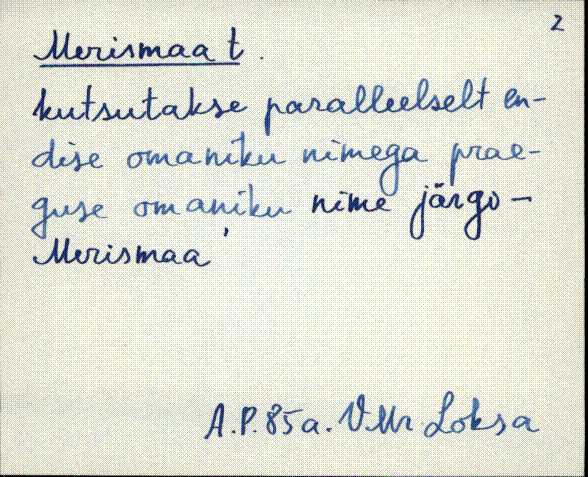 2
Merismaa t.
kutsutakse paralleelselt en-
dise omaniku nimega prae-
guse omaniku nime järgo -
Merismaa'
A.P. 85a. VMr Loksa